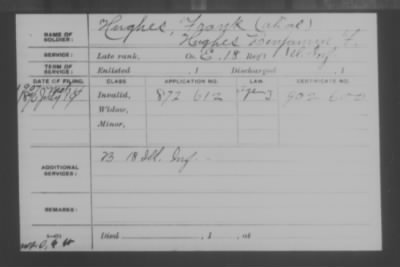 Hughes, Frank (alias)
NAME OF SOLDIER: Hughes Benjamin F.
SERVICE: Late rank, Co. E, 18 Reg't Ill. Inf
TERM OF SERVICE: Enlisted , 1 Discharged , 1
DATE OF FILING. CLASS. APPLICATION NO. LAW. CERTIFICATE NO.
Invalid, 872 612 902 600
Widow,
Minor,
ADDITIONAL SERVICES: B 18 Ill. Inf.
REMARKS:
Died , 1 , at